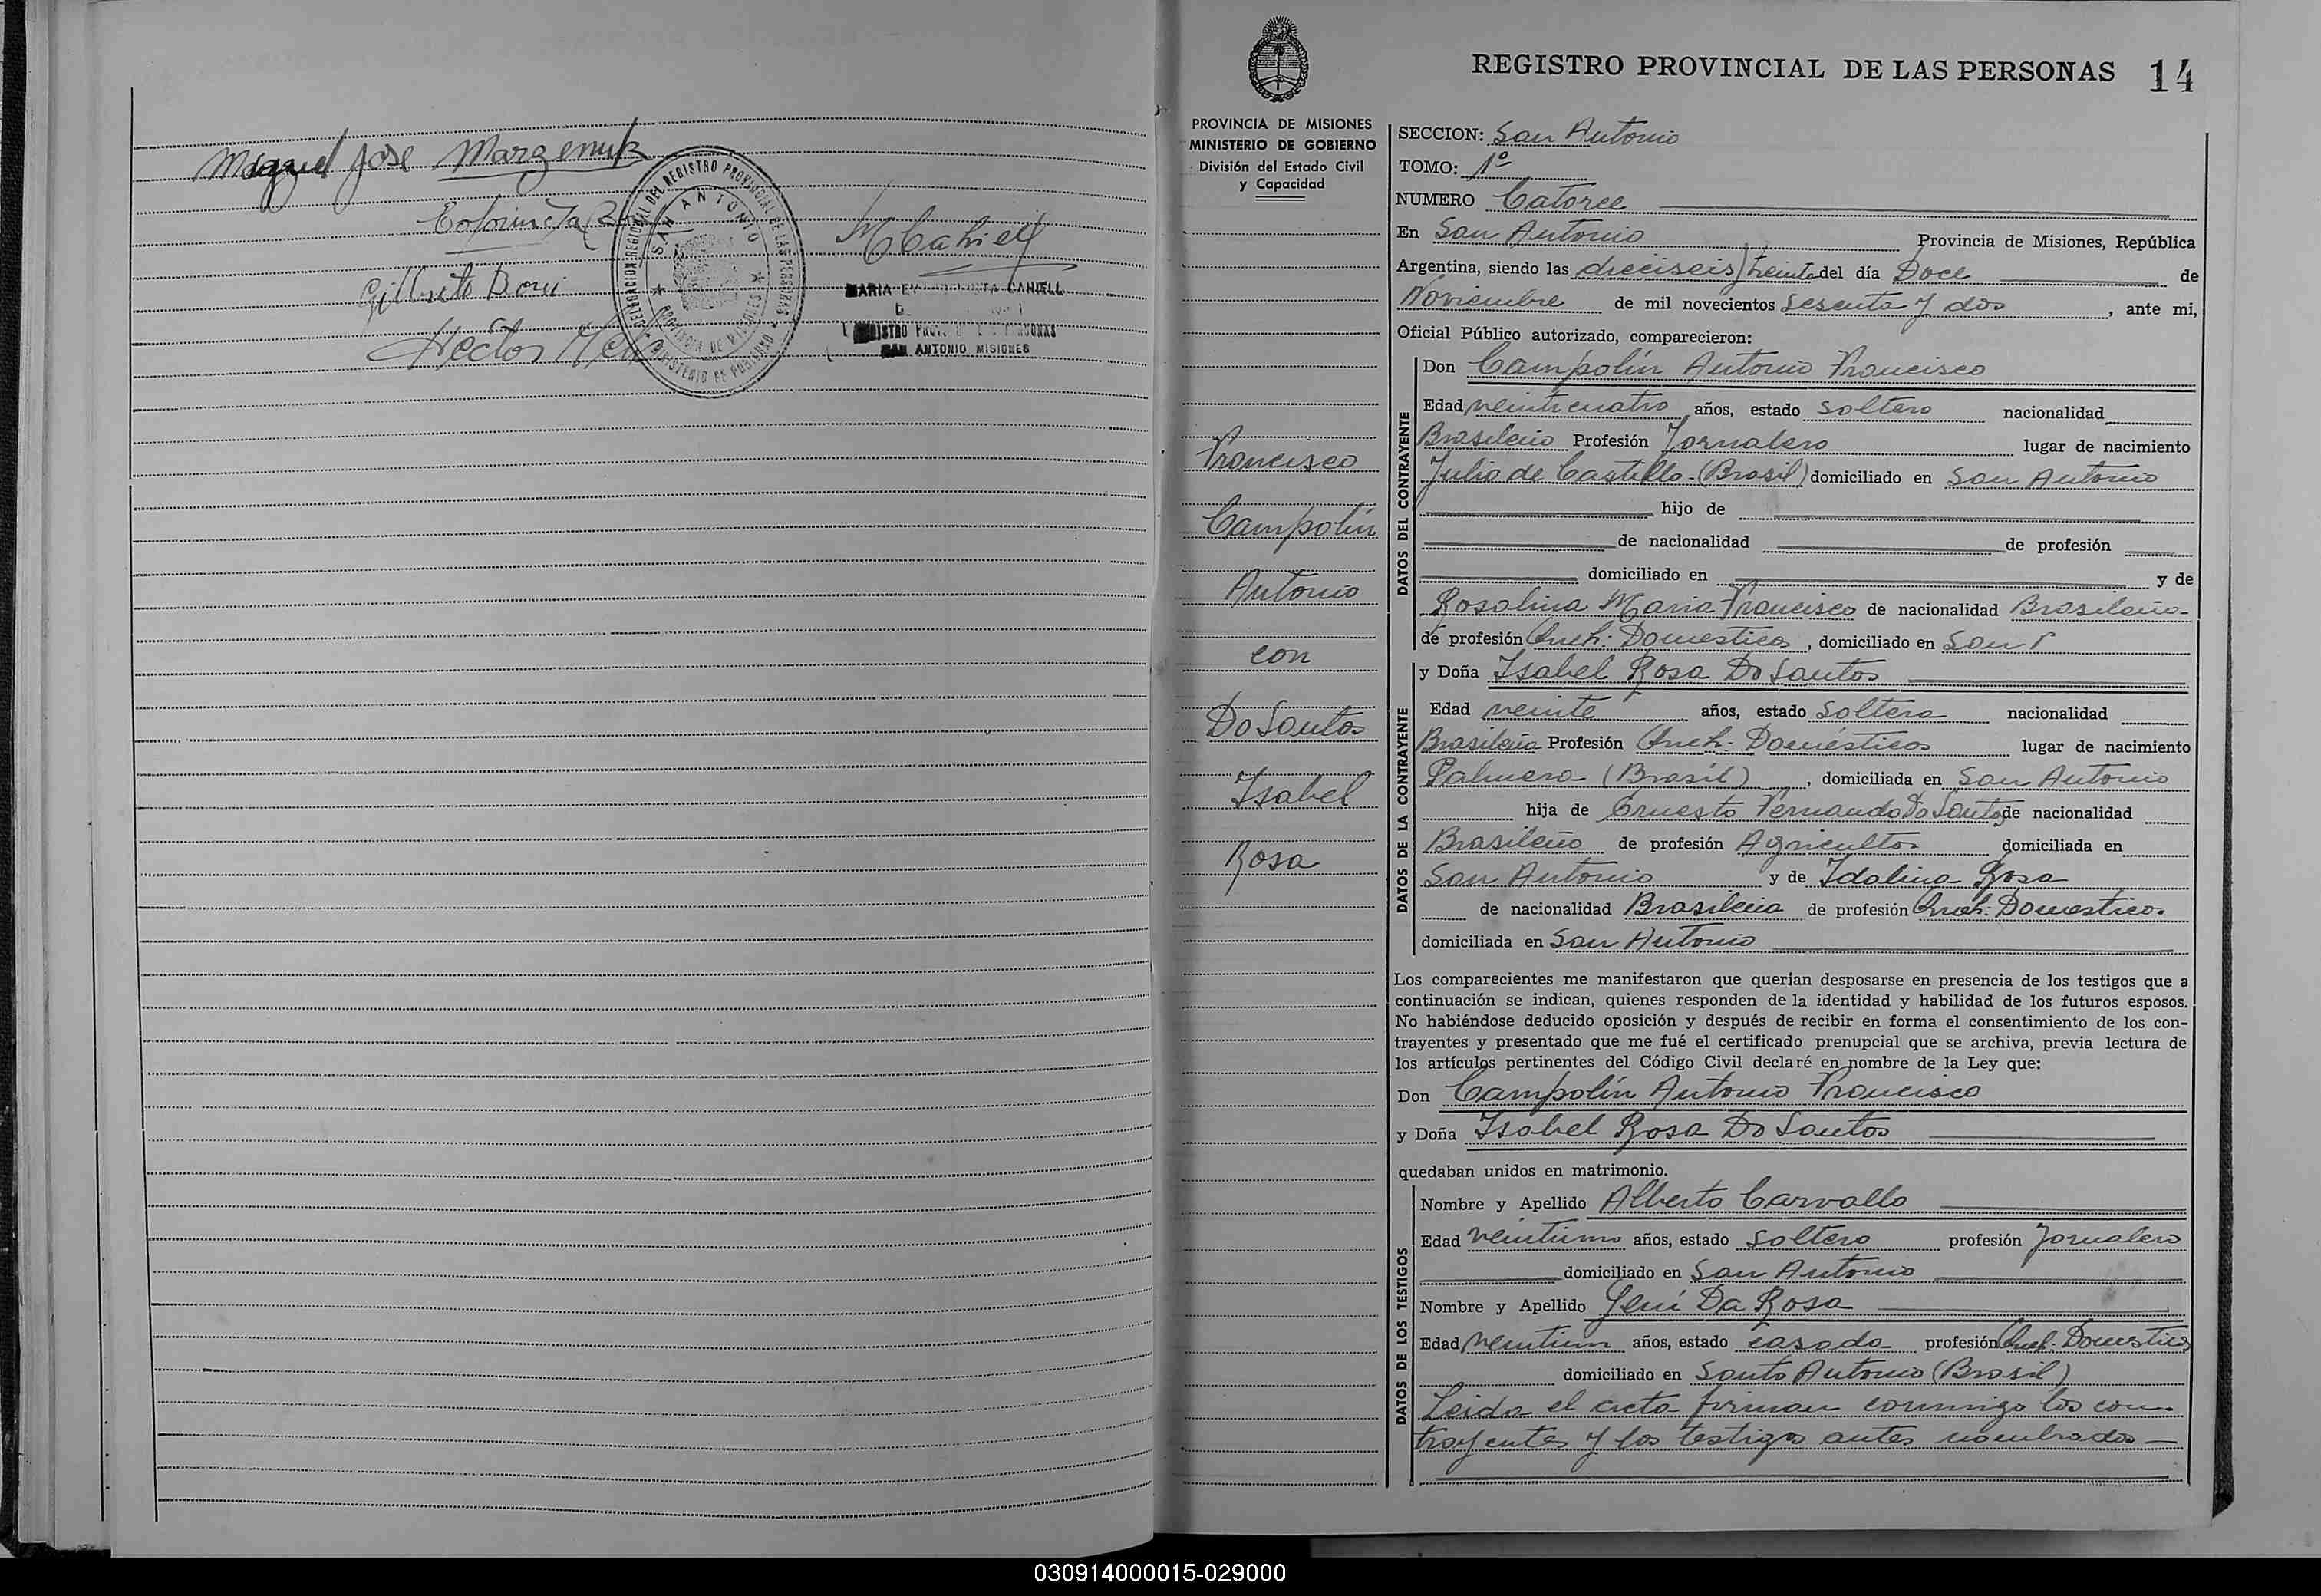 Miguel Jose Marzeniuk
Gilberto Boni
Hector
MCahiell
DELEGACION REGIONAL DEL REGISTRO PROVINCIAL DE LAS PERSONAS
SAN ANTONIO
PROVINCIA DE MISIONES
MINISTERIO DE GOBIERNO
MARIA CAHIELL
SAN ANTONIO MISIONES
REGISTRO PROVINCIAL DE LAS PERSONAS 14
PROVINCIA DE MISIONES
MINISTERIO DE GOBIERNO
División del Estado Civil
y Capacidad
Francisco
Campolín
Antonio
con
Do Santos
Isabel
Rosa
SECCION: San Antonio
TOMO: 1º
NUMERO Catorce
En San Antonio Provincia de Misiones, República
Argentina, siendo las dieciseis/treinta del día Doce de
Noviembre de mil novecientos sesenta y dos, ante mi,
Oficial Público autorizado, comparecieron:
DATOS DEL CONTRAYENTE
Don Campolín Antonio Francisco
Edad veinticuatro años, estado soltero nacionalidad
Brasileño Profesión Jornalero lugar de nacimiento
Julio de Castillo-(Brasil) domiciliado en San Antonio
hijo de
de nacionalidad de profesión
domiciliado en y de
Rosalina Maria Francisco de nacionalidad Brasileña-
de profesión Queh: Domesticos, domiciliado en San
DATOS DE LA CONTRAYENTE
y Doña Isabel Rosa Do Santos
Edad veinte años, estado Soltera nacionalidad
Brasileña Profesión Queh: Domésticos lugar de nacimiento
Palmera (Brasil), domiciliada en San Antonio
hija de Ernesto Fernando Do Santos de nacionalidad
Brasileño de profesión Agricultor domiciliada en
San Antonio y de Idalina Rosa
de nacionalidad Brasileña de profesión Queh: Domestico.
domiciliada en San Antonio
Los comparecientes me manifestaron que querían desposarse en presencia de los testigos que a
continuación se indican, quienes responden de la identidad y habilidad de los futuros esposos.
No habiéndose deducido oposición y después de recibir en forma el consentimiento de los con-
trayentes y presentado que me fué el certificado prenupcial que se archiva, previa lectura de
los artículos pertinentes del Código Civil declaré en nombre de la Ley que:
Don Campolín Antonio Francisco
y Doña Isabel Rosa Do Santos
quedaban unidos en matrimonio.
DATOS DE LOS TESTIGOS
Nombre y Apellido Alberto Carvallo
Edad veintiuno años, estado soltero profesión Jornalero
domiciliado en San Antonio
Nombre y Apellido Jení Da Rosa
Edad veintiun años, estado casada profesión Queh: Domesticos
domiciliado en Santo Antonio (Brasil)
Leida el acta firman conmigo los con-
trayentes y los testigos antes nombrados-
030914000015-029000